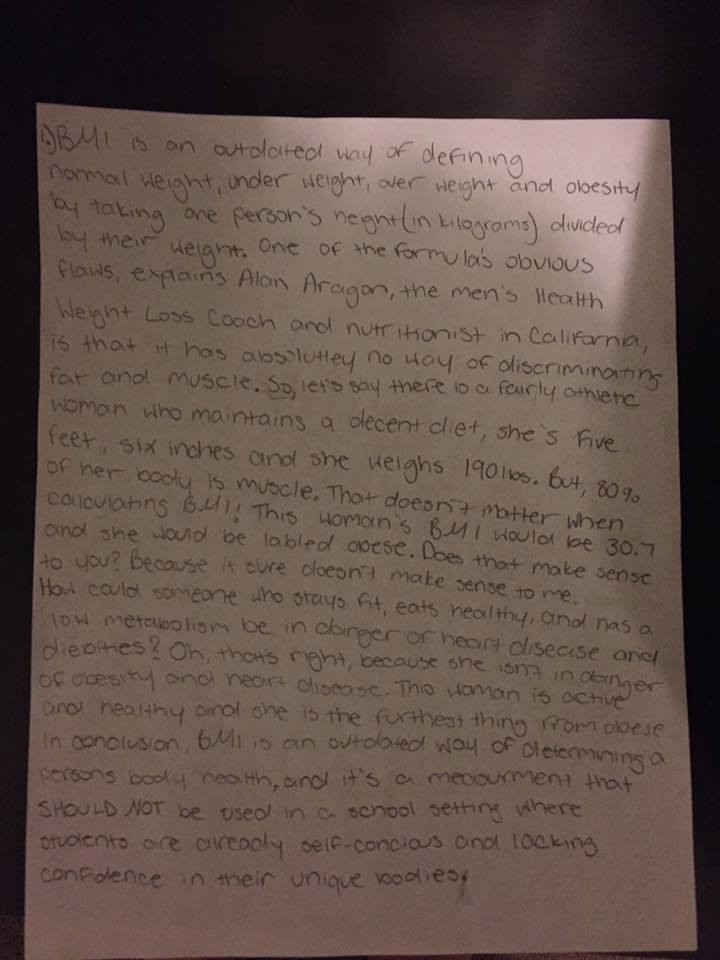 1.) BMI is an outdated way of defining
normal weight, under weight, over weight and obesity
by taking one person's height (in kilograms) divided
by their weight. One of the formula's obvious
flaws, explains Alan Aragon, the men's Health
Weight Loss Coach and nutritionist in California,
is that it has absolutley no way of discriminating
fat and muscle. So, let's say there is a fairly athletic
woman who maintains a decent diet, she's five
feet, six inches and she weighs 190 lbs. But, 80%
of her body is muscle. That doesn't matter when
calculating BMI! This woman's BMI would be 30.7
and she would be labled obese. Does that make sense
to you? Because it sure doesn't make sense to me.
How could someone who stays fit, eats healthy, and has a
low metabolism be in danger of heart disease and
diebities? Oh, that's right, because she isn't in danger
of obesity and heart disease. This woman is active
and healthy and she is the furthest thing from obese
In conclusion, BMI is an outdated way of determining a
persons body health, and it's a meaurment that
SHOULD NOT be used in a school setting where
students are already self-concious and lacking
confidence in their unique bodies.